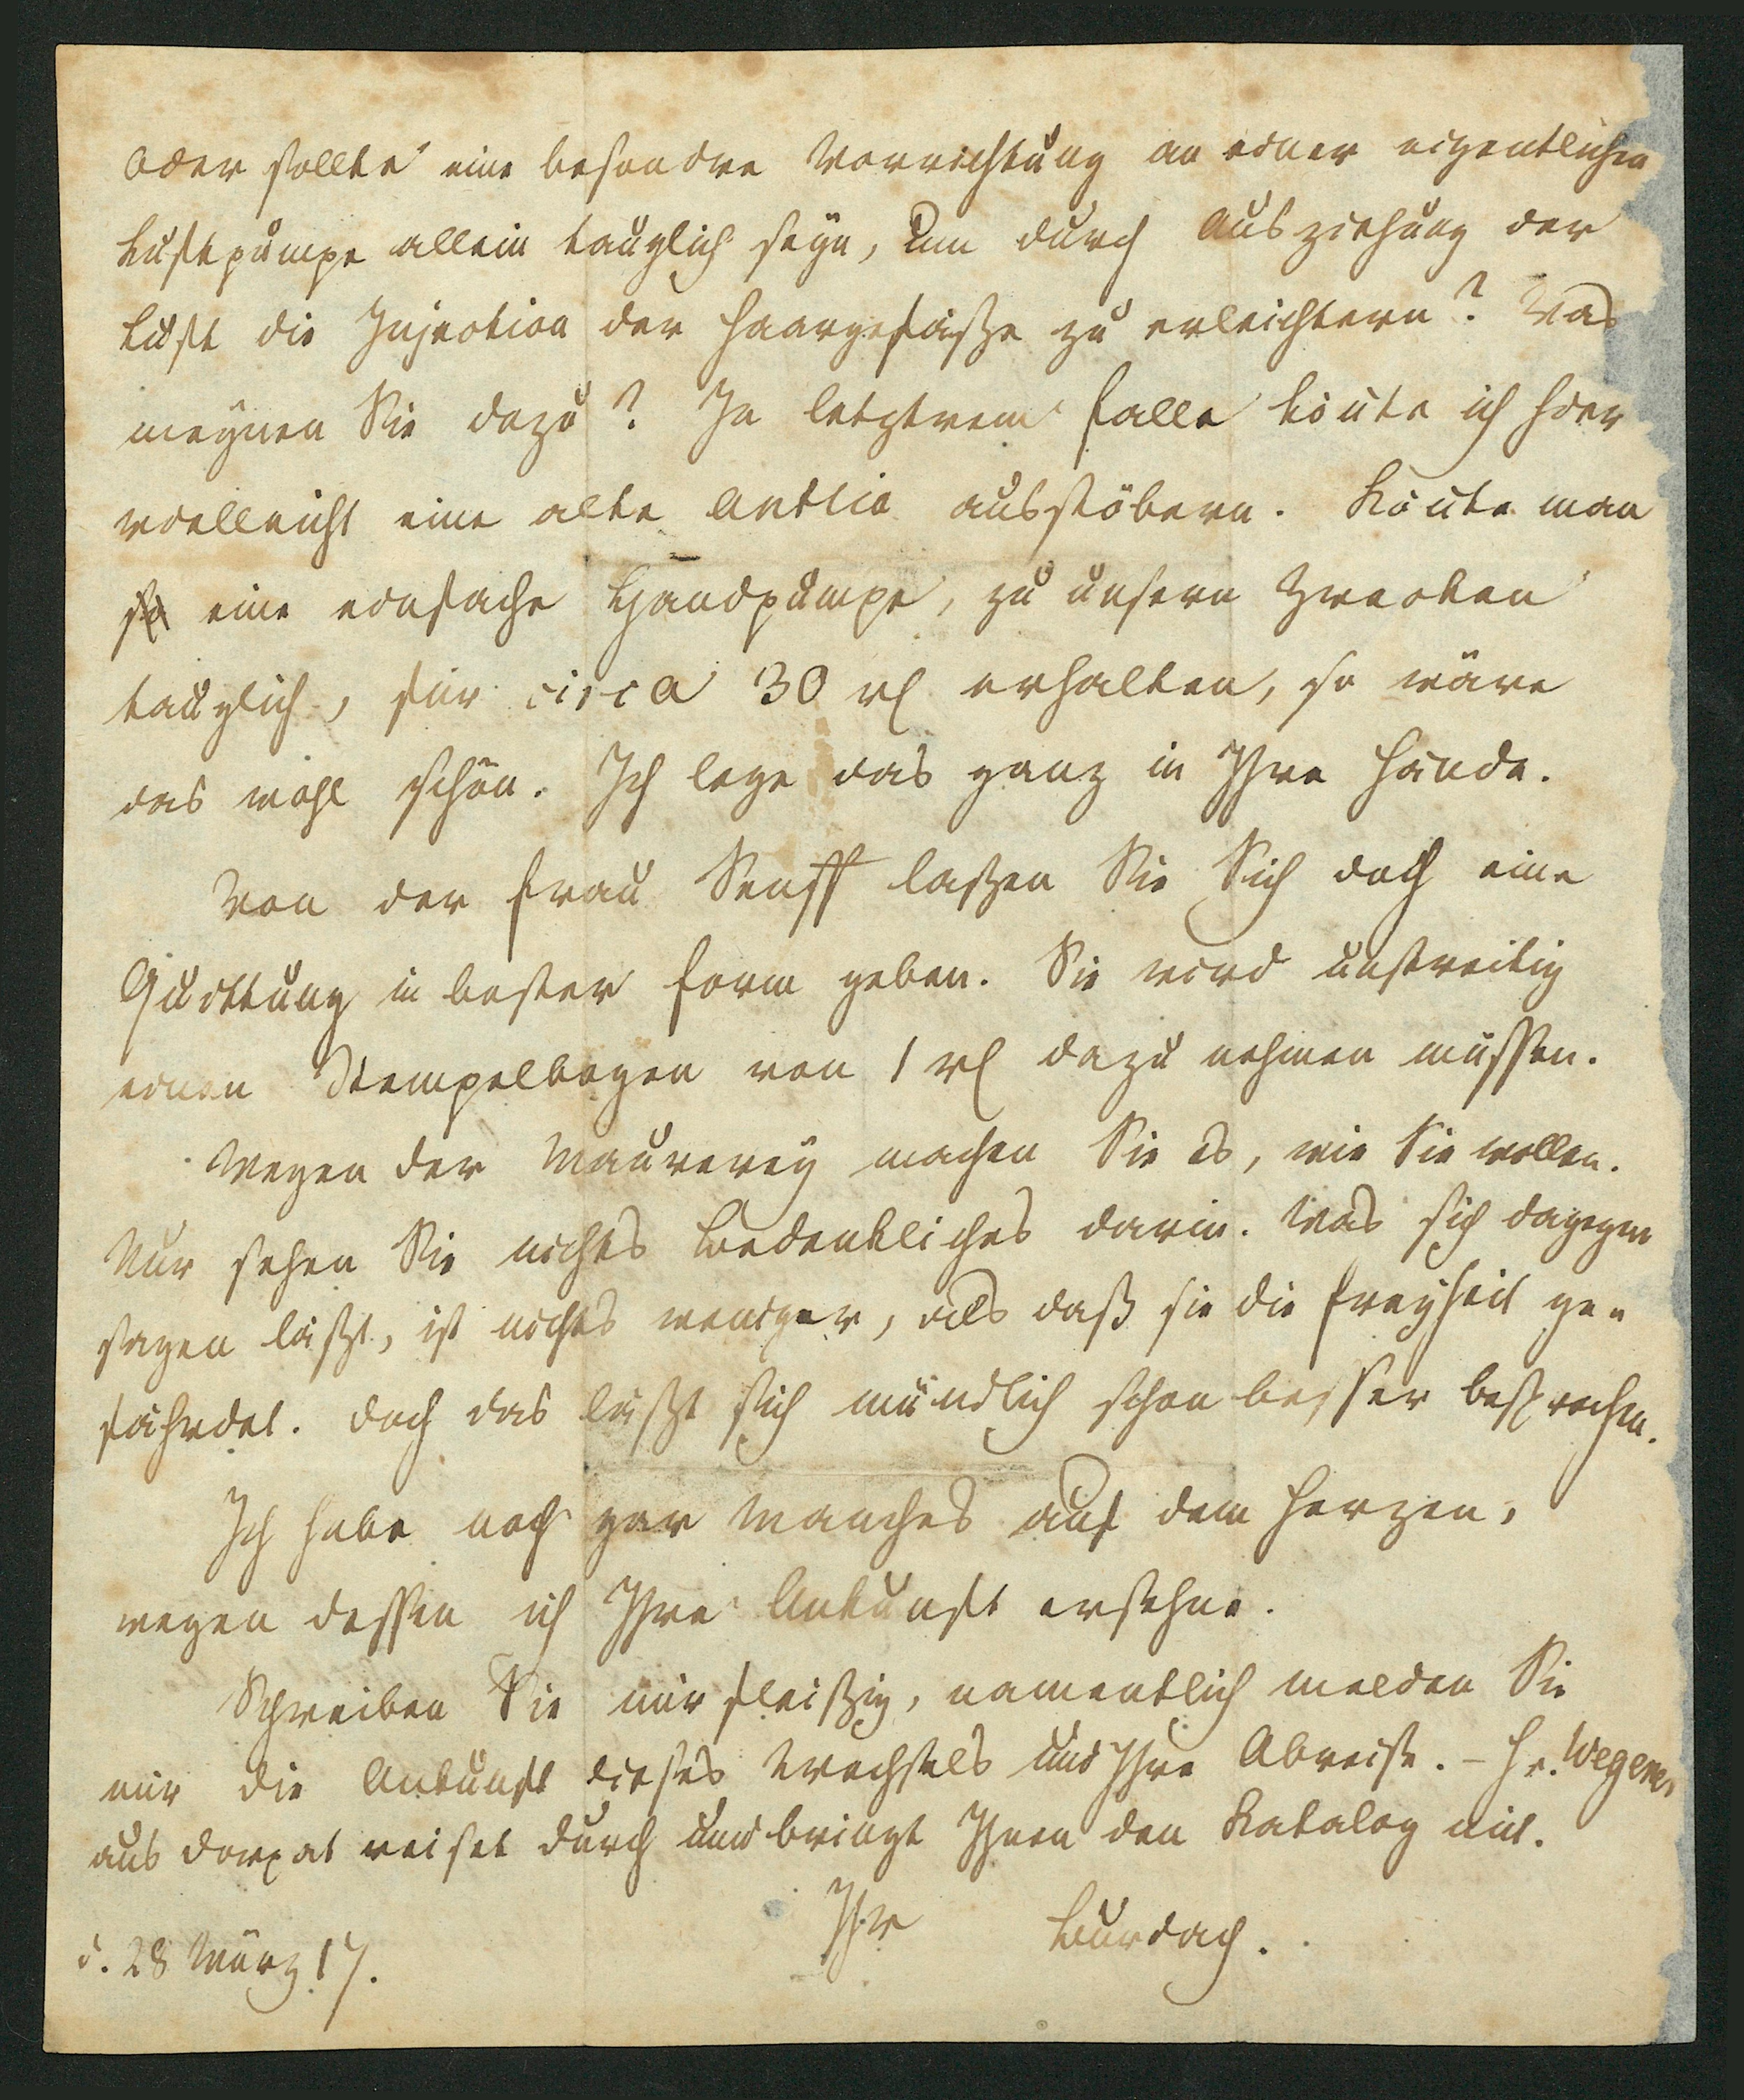 oder sollte eine besondre Vorrichtung an einer eigentlichen
Luftpumpe allein tauglich seyn, um durch Ausziehung der
Luft die Injection der Haargefäße zu erleichtern? Was
meynen Sie dazu? In letzterem Falle könte ich hier
vielleicht eine alte Antlia ausstöbern. Könte man
so eine einfache Handpumpe, zu unsern Zwecken
tauglich, für circa 30 rl erhalten, so wäre
das wohl schön. Ich lege das ganz in Ihre Hände.
Von der Frau Senff laßen Sie Sich doch eine
Quittung in bester Form geben. Sie wird unstreitig
einen Stempelbogen von 1 rl dazu nehmen müssen.
Wegen der Maurerey machen Sie es, wie Sie wollen.
Nur sehen Sie nichts Bedenkliches darin. Was sich dagegen
sagen läßt, ist nichts weniger, als daß sie die Freyheit ge-
fährdet. Doch das läßt sich mündlich schon besser besprechen.
Ich habe noch gar Manches auf dem Herzen,
wegen dessen ich Ihre Ankunft ersehne.
Schreiben Sie mir fleißig, namentlich melden Sie
mir die Ankunft dieses Wechsels und Ihre Abreise. – Hr. Wegener
aus Dorpat reiset durch und bringt Ihnen den Katalog mit.
Ihr Burdach.
d. 28 März 17.